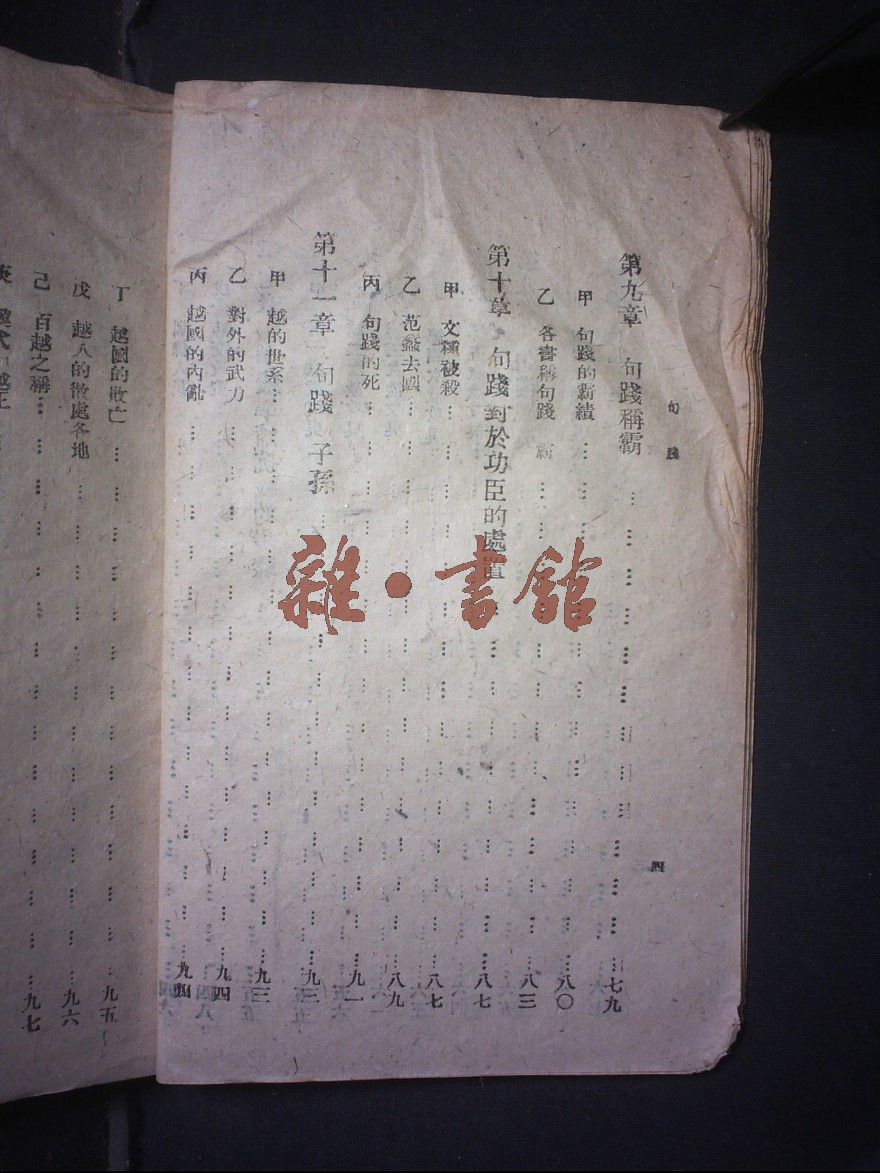 句踐
四
第九章 句踐稱霸 … … … … … … … … … …七九
甲 句踐的霸績 … … … … … … … … … …八〇
乙 各書稱句踐 霸 … … … … … … … … …八三
第十章 句踐對於功臣的處置 … … … … … …八七
甲 文種被殺 … … … … … … … … … … …八七
乙 范蠡去國 … … … … … … … … … … …八九
丙 句踐的死 … … … … … … … … … … …九一
第十一章 句踐 子孫 … … … … … … … … …九三
甲 越的世系 … … … … … … … … … … …九三
乙 對外的武力 … … … … … … … … … …九四
丙 越國的內亂 … … … … … … … … … …九四
丁 越國的敗亡 … … … … … … … … … …九五
戊 越人的散處各地 … … … … … … … … …九六
己 百越之稱 … … … … … … … … … … …九七
雜·書館